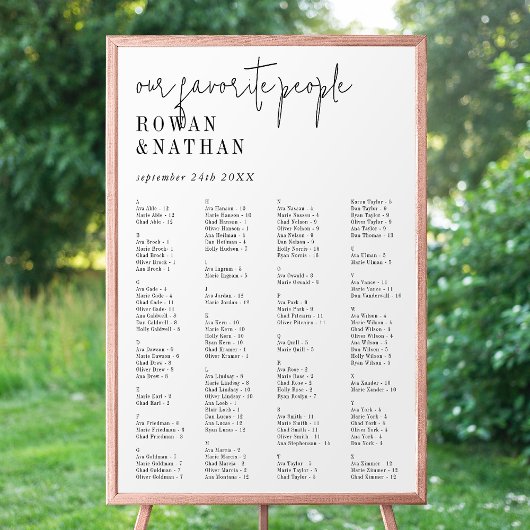 our favorite people
ROWAN
&NATHAN
september 24th 20XX
A
Ava Able - 12
Marie Ables - 12
Chad Able - 12
B
Ava Brock - 1
Marie Brock - 1
Chad Brock - 1
Oliver Brock - 1
Ana Brock - 1
Ava Cade - 4
Marie Cade - 4
Chad Cade - 11
Oliver Cade - 11
Ana Caldwell - 8
Dan Caldwell - 8
Holly Caldwell - 8
D
Ava Dawson - 6
Marie Dawson - 6
Chad Drew - 8
Oliver Drew - 8
Ana Drew - 8
E
Marie Earl - 2
Chad Earl - 2
F
Ava Friedman - 8
Marie Friedman - 8
Chad Friedman - 8
G
Ava Goldman - 7
Marie Goldman - 7
Chad Goldman - 7
Oliver Goldman - 7
H
Ava Hanson - 10
Marie Hanson - 10
Chad Hanson - 1
Oliver Hanson - 1
Ana Heilman - 5
Dan Heilman - 5
Holly Hudson - 7
I
Ava Ingram - 5
Marie Ingram - 5
J
Ava Jordan - 12
Marie Jordan - 12
K
Ava Kern - 10
Marie Kern - 10
Holly Kern - 10
Ryan Kern - 10
Chad Kramer - 1
Oliver Kramer - 1
L
Ava Lindsay - 8
Marie Lindsay - 8
Chad Lindsay - 10
Oliver Lindsay - 10
Ana Loeb - 1
Blair Loeb - 1
Dan Lucas - 12
Ana Lucas - 12
M
Ava Marcis - 2
Marie Marcis - 2
Chad Marcis - 2
Oliver Marcis - 2
Ana Montana - 8
N
Ava Nassau - 4
Marie Nassau - 4
Chad Nelson - 9
Oliver Nelson - 9
Ana Nelson - 9
Dan Nelson - 9
Holly Norris - 6
Ryan Norris - 6
O
Ava Oswald - 3
Marie Oswald - 3
P
Ava Park - 9
Marie Park - 9
Chad Pitcairn - 1
Oliver Pitcairn - 1
Q
Ava Quill - 5
Marie Quill - 5
R
Ava Rose - 2
Marie Rose - 2
Chad Rose - 2
Holly Rose - 2
Ryan Roslyn - 7
S
Ava Smith - 11
Marie Smith - 11
Chad Smith - 11
Oliver Smith - 11
Ana Stephen - 12
T
Ava Taylor - 5
Marie Taylor - 5
Chad Taylor - 5
Karen Taylor - 5
Dan Taylor - 5
Ryan Taylor - 9
Oliver Taylor - 9
Ana Taylor - 9
Dan Thomas - 13
U
Ava Ulman - 5
Marie Ulman - 5
V
Ava Vance - 11
Marie Vance - 11
Dan Vanderwall - 16
W
Ava Wilson - 4
Marie Wilson - 4
Chad Wilson - 4
Oliver Wilson - 9
Ana Wilson - 9
Dan Wilson - 9
Holly Wilson - 9
Ryan Wilson - 9
X
Ava Xander - 10
Marie Xander - 10
Y
Ava York - 4
Marie York - 4
Chad York - 4
Oliver York - 4
Ana York - 4
Z
Ava Zimmer - 12
Marie Zimmer - 12
Chad Zimmer - 12